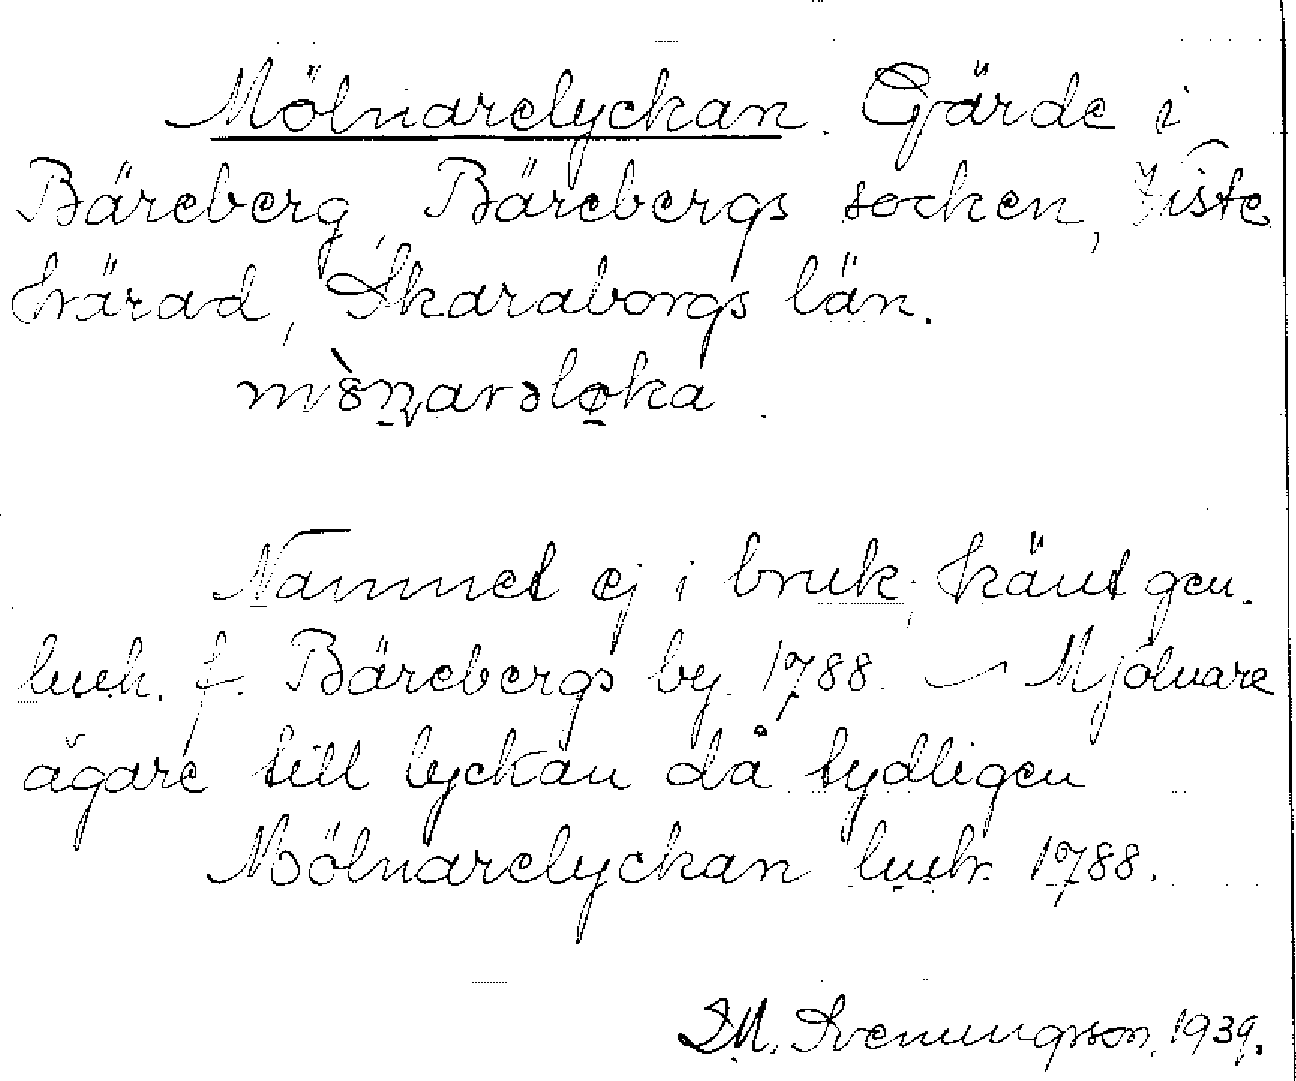 Mölnarelyckan. Gärde i
Bäreberg, Bärebergs socken, Viste
härad, Skaraborgs län.
Namnet ej i bruk, känt gen.
lmh. f. Bärebergs by 1788. – Mjölnare
ägare till lyckan då tydligen
Mölnarelyckan lmh. 1788.
Svenungsson, 1939.